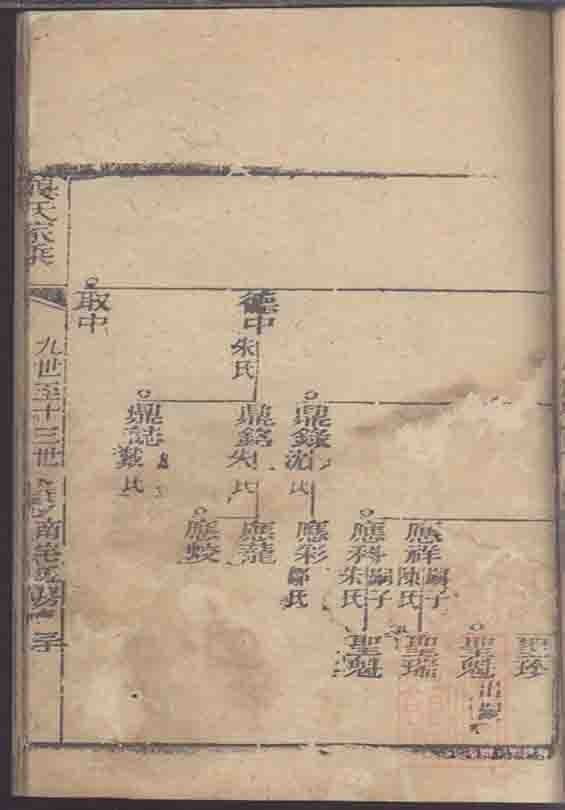 德中
朱氏
取中
鼎錄
沈氏
鼎銘
朱氏
鼎誌
氏
應祥
嗣子
陳氏
應科
嗣子
朱氏
應彩
鄒氏
應龍
應蛟
聖珍
聖魁
出嗣
聖瑞
聖魁
氏宗
九世至十三世
南